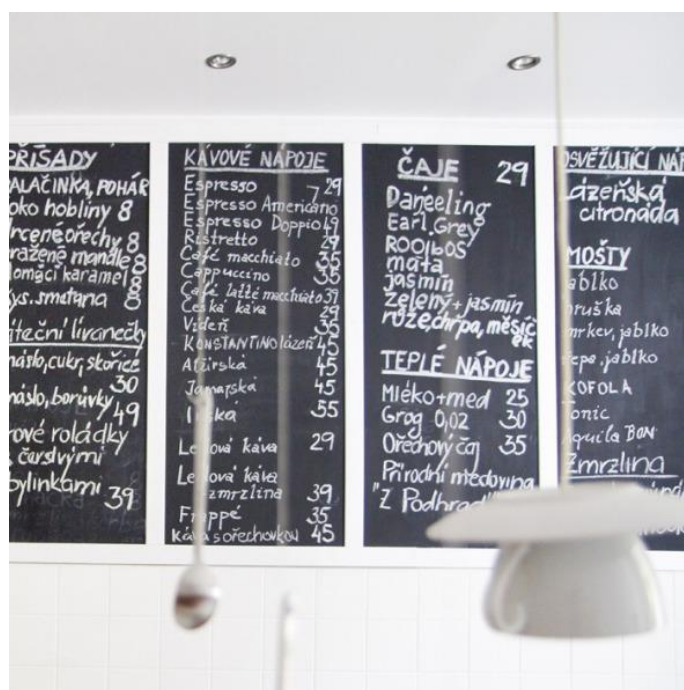 PŘÍSADY
PALAČINKA, POHÁR
hobliny 8
ořechy 8
mandle 8
karamel 8
smetana 8
lívanečky
máslo, cukr, skořice
30
máslo, borůvky
49
roládky
čerstvými
bylinkami
39
KÁVOVÉ NÁPOJE
Espresso 29
Espresso Americano
Espresso Doppio 49
Ristretto 29
Café macchiato 35
Cappuccino 35
Café latté macchiato 39
Česká káva 29
Vídeň 35
KONSTANTINO lázeň 45
Alžírská 45
Jamajská 45
55
káva 29
káva
zmrzlina 39
Frappé 35
Káva s ořechovkou 45
ČAJE 29
Darjeeling
Earl Grey
ROOibOS
máta
jasmín
zelený + jasmín
růže, chrpa, měsíč
ek
TEPLÉ NÁPOJE
Mléko + med 25
Grog 0,02 30
Ořechový čaj 35
Přírodní medovina
"Z
OSVĚŽUJÍCÍ
Lázeňská
citronáda
MOŠTY
jablko
hruška
mrkev, jablko
řepa, jablko
KOFOLA
Tonic
Aquila BON
Zmrzlina